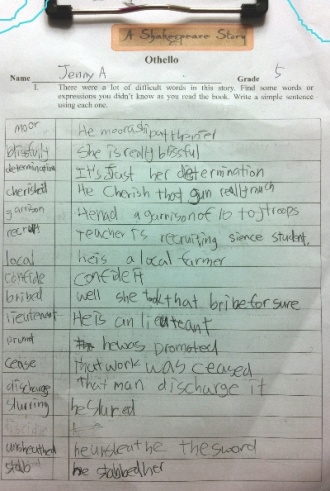 A Shakespeare Story
Othello
Name Jenny A Grade 5
1. There were a lot of difficult words in this story. Find some words or
expressions you didn't know as you read the book. Write a simple sentence
using each one.
moor He
blissfully She is really blissful
determination It's Just her determination
cherished He Cherish that gun really much
garrison He had a garrison of 10 to troops
recruit Teacher is recruiting sience student.
local he is a local farmer
confide confide it
bribed well she took that bribe for sure
lieutenant He is an lieuteant
he was promoted
cease that work was ceased
discharge that man discharge it
slurring he slurred
unsheathed he unsleathe the sword
stabb he stabbed her